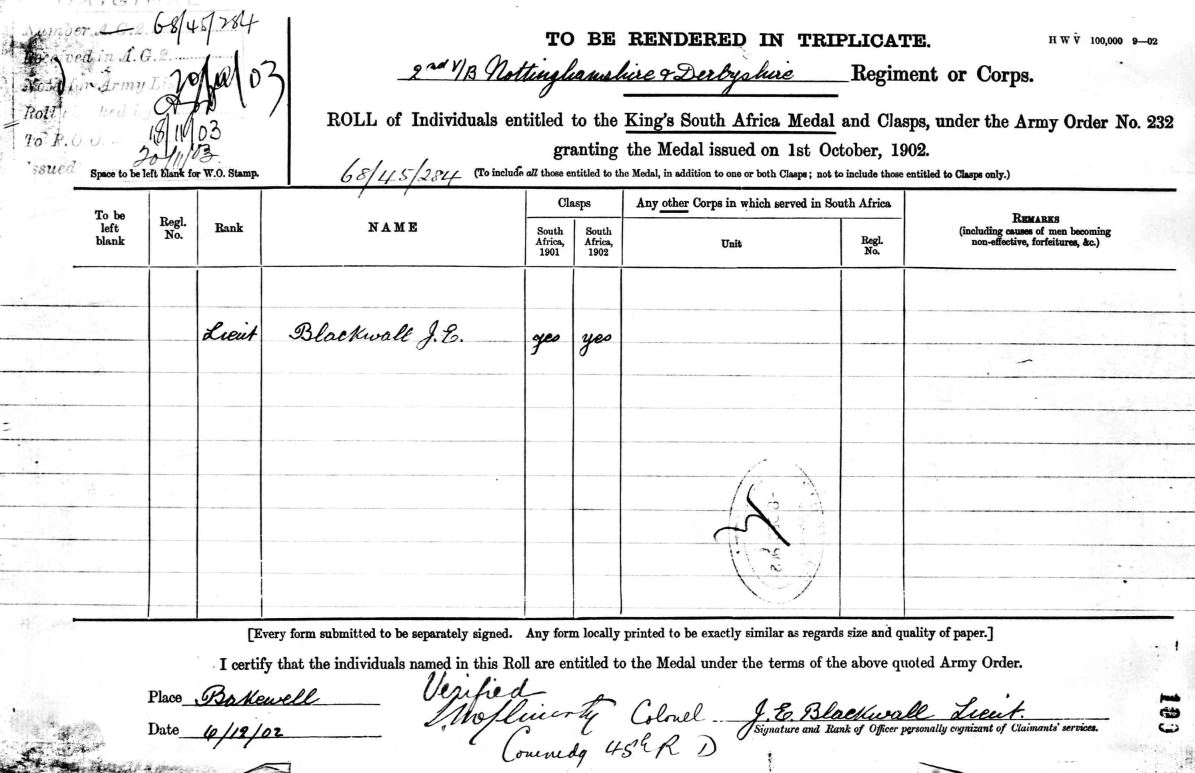 Number A.G.2. 68/45/284
Received in A.G.2.
Roll
To R.O.
18/11/03
issued 20/11/03
Space to be left blank for W.O. Stamp.
TO BE RENDERED IN TRIPLICATE.
H W V 100,000 9—02
2nd V/B Nottinghamshire & Derbyshire Regiment or Corps.
ROLL of Individuals entitled to the King's South Africa Medal and Clasps, under the Army Order No. 232
granting the Medal issued on 1st October, 1902.
68/45/284 (To include all those entitled to the Medal, in addition to one or both Clasps; not to include those entitled to Clasps only.)
To be left blank
Regl. No.
Rank
NAME
Clasps
South Africa, 1901
South Africa, 1902
Any other Corps in which served in South Africa
Unit
Regl. No.
REMARKS
(including causes of men becoming
non-effective, forfeitures, &c.)
Lieut Blackwall J.E. yes yes
[Every form submitted to be separately signed. Any form locally printed to be exactly similar as regards size and quality of paper.]
I certify that the individuals named in this Roll are entitled to the Medal under the terms of the above quoted Army Order.
Place Bakewell
Date 6/12/02
Verified
Colonel
45th R D
J. E. Blackwall Lieut
Signature and Rank of Officer personally cognizant of Claimants' services.